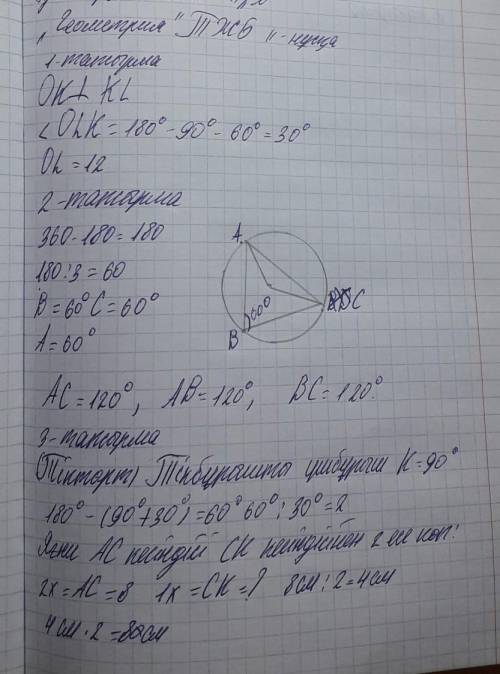 "Геометрия" ТЖБ "-нұсқа
1-тапсырма
OK⊥ KL
<OLK = 180° - 90° - 60° = 30°
OL = 12
2-тапсырма
360-180=180
180:3=60
B=60° C=60°
A=60°
A
B
60°
C
AC=120°, AB=120°, BC=120°.
3-тапсырма
Тікбұрышты үшбұрыш K=90°
180°-(90°+30°)=60° 60°:30°=2
Яғни AC CK 2 есе көп:
2x=AC=8 1x=CK=? 8см:2=4см
4см·2=8см